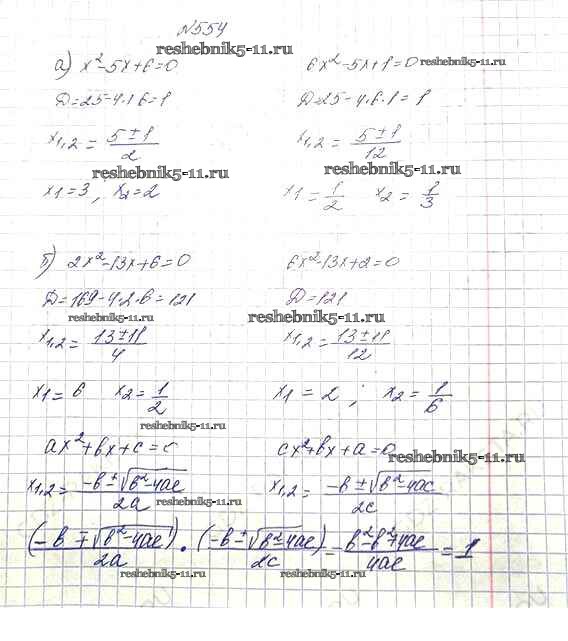 №554
reshebnik5-11.ru
а) x²-5x+6=0 6x²-5x+1=0 reshebnik5-11.ru
Д=25-4·1·6=1 Д=25-4·6·1=1
x1,2 = (5±1)/2 x1,2 = (5±1)/12
reshebnik5-11.ru reshebnik5-11.ru
x1=3, x2=2 x1=1/2 x2=1/3
б) 2x²-13x+6=0 6x²-13x+2=0
Д=169-4·2·6=121 Д=121
reshebnik5-11.ru reshebnik5-11.ru
x1,2 = (13±11)/4 x1,2 = (13±11)/12
x1=6 x2=1/2 x1=2; x2=1/6
reshebnik5-11.ru
ax²+bx+c=c cx²+bx+a=0
reshebnik5-11.ru
x1,2 = (-b±√(b²-4ac))/2a x1,2 = (-b±√(b²-4ac))/2c
reshebnik5-11.ru
(-b∓√(b²-4ac))/2a · (-b±√(b²-4ac))/2c = (b²-b²+4ac)/4ac = 1
reshebnik5-11.ru reshebnik5-11.ru